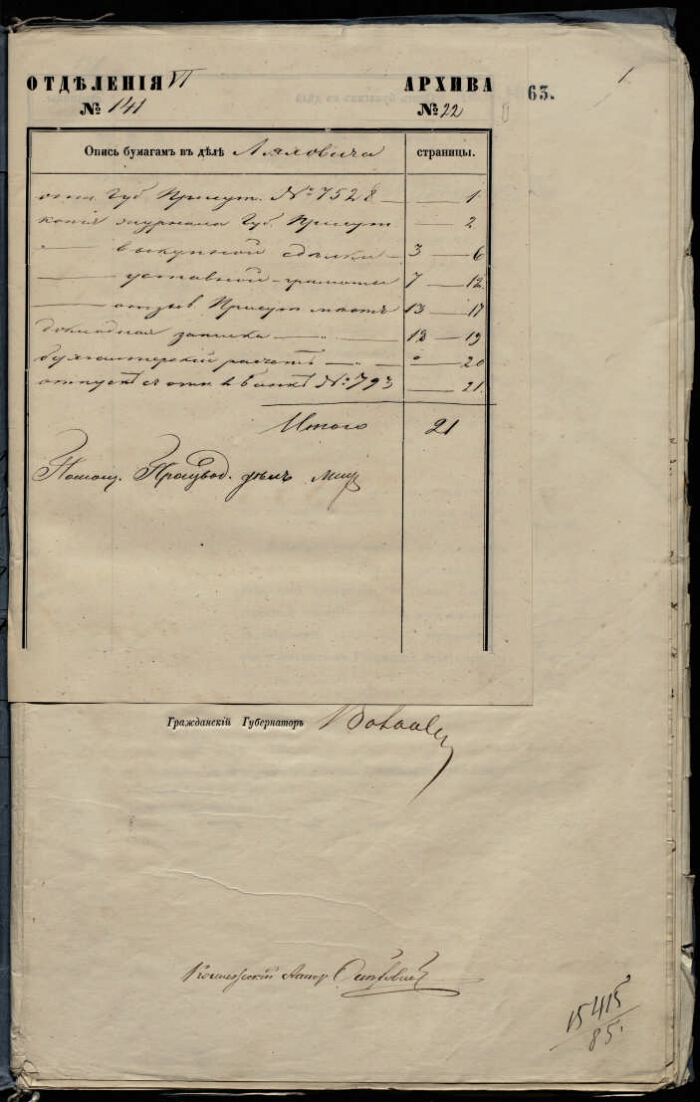 ОТДѢЛЕНІЯ VI АРХИВА 63. 1
№ 141 № 22
Опись бумагамъ въ дѣлѣ Ляховича страницы.
отн. Губ. Присут. № 7528 — 1
копія журнала Губ. Присут — 2
— выкупной сдѣлки — 3 — 6
— уставной грамоты 7 — 12
— отзыв. Присут. мѣстъ 13 — 17
докладная записка — 18 — 19
бухгалтерскій расчетъ — 20
отпускъ отн. въ банкъ № 793 — 21
Итого 21
Помощ. Производ. дѣлъ
Гражданскій Губернаторъ
15415
85.